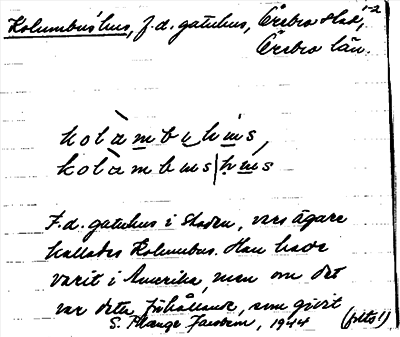 1-2
Kolumbushus, f.d. gatuhus, Örebro stad,
Örebro län.
kolàmbuhus,
kolàmbus|hus
F.d. gatuhus i staden, vars ägare
kallades Kolumbus. Han hade
varit i Amerika, men om det
var detta förhållande, som givit
S. 1944 (forts!)